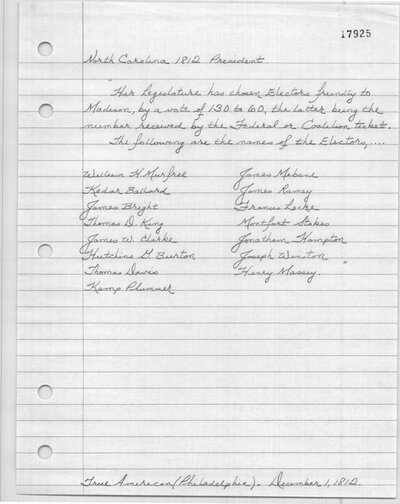 17925
North Carolina 1812 President
"Her Legislature has chosen Electors friendly to
Madison, by a vote of 130 to 60, the latter being the
number received by the Federal or Coalition ticket.
The following are the names of the Electors,....
William H. Murfree James Mebane
Kedar Ballard James Rainey
James Bright Francis Locke
Thomas D. King Montfort Stokes
James W. Clarke Jonathan Hampton
Hutchins G. Burton Joseph Winston
Thomas Davis Henry Massey. "
Kemp Plummer
True American (Philadelphia). December 1, 1812.